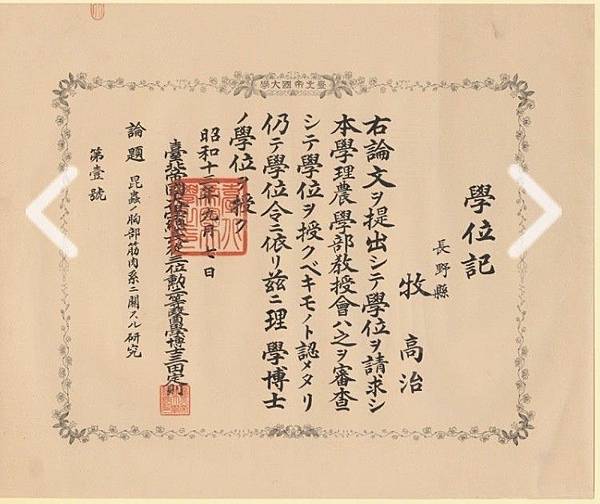 臺北帝國大學
學位記
長野縣
牧 高治
右論文ヲ提出シテ學位ヲ請求シ
本學理農學部教授會ハ之ヲ審査
シテ學位ヲ授クベキモノト認メタリ
仍テ學位令ニ依リ玆ニ理學博士
ノ學位ヲ授ク
昭和十三年九月 日
臺北帝國大學總長從三位勲二等醫學博士三田定則
論題 昆蟲ノ胸部筋肉系ニ關スル研究
第壹號